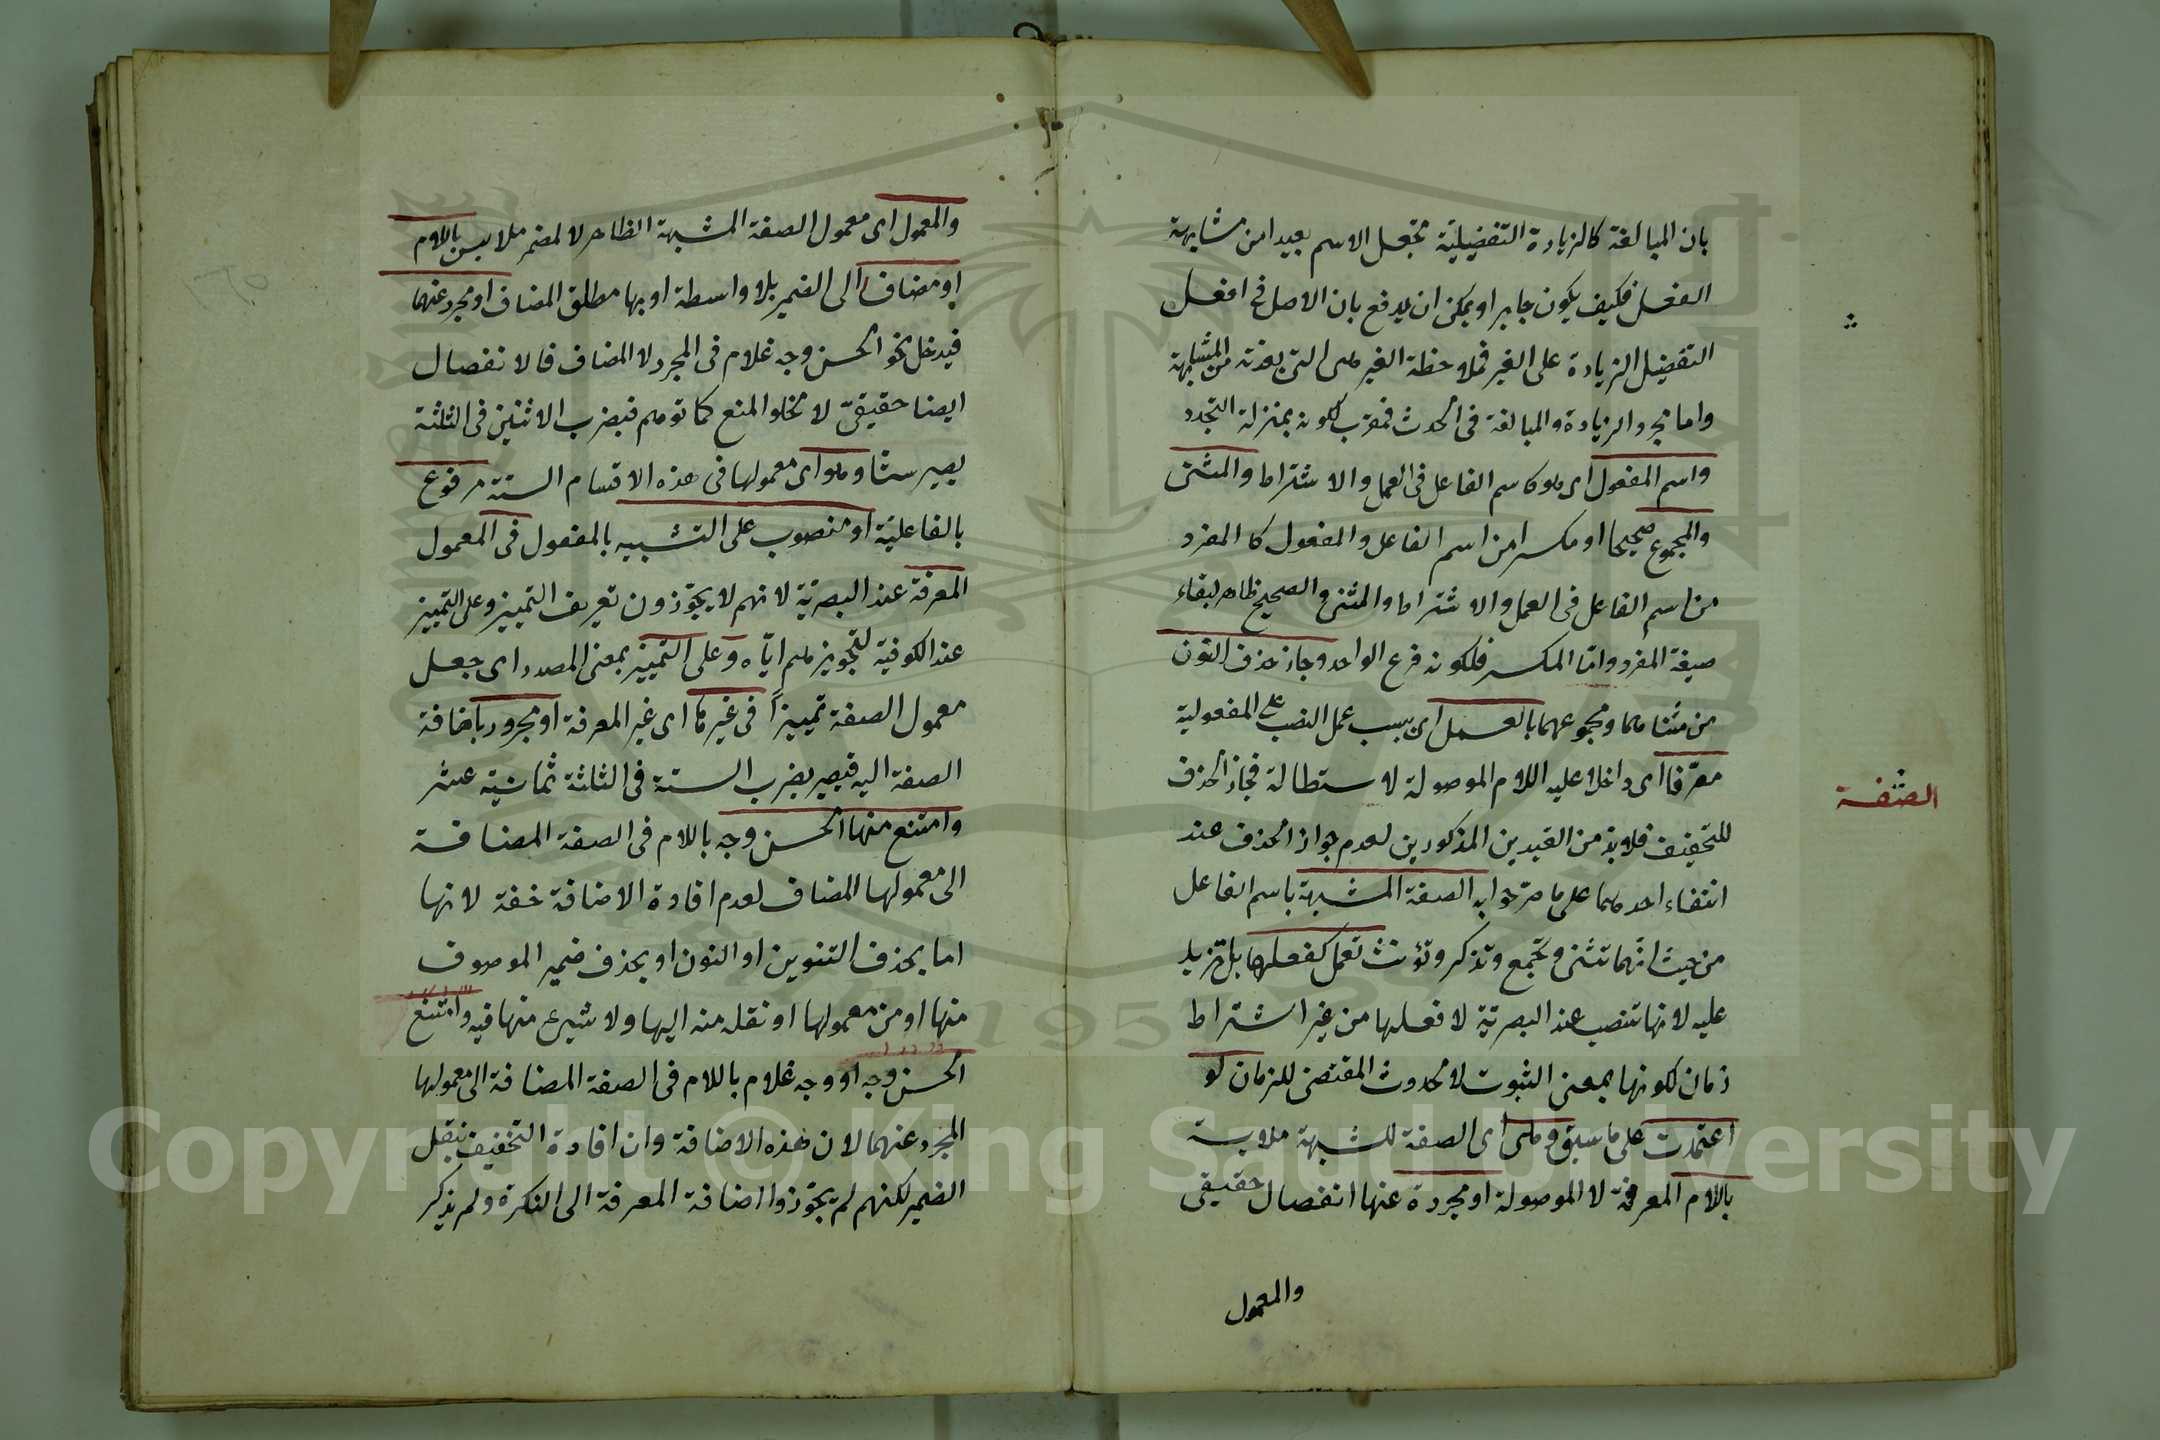 بان المبالغة كالزيادة التفضيلية تجعل الاسم بعيدا من مشابهة
الفعل فكيف يكون جابرا ويمكن ان يدفع بان الاصل في افعل
التفضيل الزيادة على الغير فملاحظة الغير هى التى بعدته من المشابهة
واما مجرد الزيادة والمبالغة فى الحدث فمقرب لكونه بمنزلة التجدد
واسم المفعول اى هو كاسم الفاعل فى العمل والاشتراط والمثنى
والمجموع صحيحا او مكسرا من اسم الفاعل والمفعول كالمفرد
من اسم الفاعل فى العمل والاشتراط والمثنى والصحيح ظاهر لبقاء
صيغة المفرد وامّا المكسر فلكونه فرع الواحد وجاز حذف النون
من مثناهما ومجموعهما بالعمل اى بسبب عمل النصب على المفعولية
معرّفا اى داخلا عليه اللام الموصولة لاستطالة فجاز الحذف
للتخفيف فلا بد من القيدين المذكورين لعدم جواز الحذف عند
انتفاء احدهما على ما صرّحوا به الصفة المشبهة باسم الفاعل
من حيث انّها تثنى وتجمع وتذكر وتؤنث تعمل كفعلها بل تزيد
عليه لانها تنصب عند البصريّة لا فعلها من غير اشتراط
زمان لكونها بمعنى الثبوت لا الحدوث المقتضى للزمان لو
اعتمدت على ما سبق وهى اى الصفة المشبهة ملابسة
باللام المعرفة لا الموصولة او مجردة عنها انفصال حقيقى
والمعمول
الصفة
والمعمول اى معمول الصفة المشبهة الظاهر لا لمضمر ملابس باللام
او مضاف الى الضمير بلا واسطة او بها مطلق المضاف او مجرد عنهما
فيدخل نحو الحسن وجه غلام فى المجرد لا المضاف فالانفصال
ايضا حقيقىّ لا مخلو المنع كما توهم فبضرب الاثنين فى الثلثة
يصير ستّا وهو اى معمولها فى هذه الاقسام الستة مرفوع
بالفاعليّة او منصوب على التشبيه بالمفعول فى المعمول
المعرفة عند البصريّة لانهم لا يجوّزون تعريف التمييز وعلى التمييز
عند الكوفية لتجويزهم ايّاه وعلى التمييز بمعنى المصدر اى جعل
معمول الصفة تمييزا فى غيرها اى غير المعرفة او مجرور باضافة
الصفة اليه فيصير بضرب الستة فى الثلثة ثمانية عشر
وامتنع منها الحسن وجه باللام فى الصفة المضافة
الى معمولها المضاف لعدم افادة الاضافة خفة لانها
اما بحذف التنوين او النون او بحذف ضمير الموصوف
منها او من معمولها او نقله منه اليها ولا شىء منها فيه وامتنع
الحسن وجه او وجه غلام باللام فى الصفة المضافة الى معمولها
المجرّد عنهما لان هذه الاضافة وان افادة التخفيف بنقل
الضمير لكنهم لم يجوّزوا اضافة المعرفة الى النكرة ولم يذكر
Copyright © King Saud University
1957